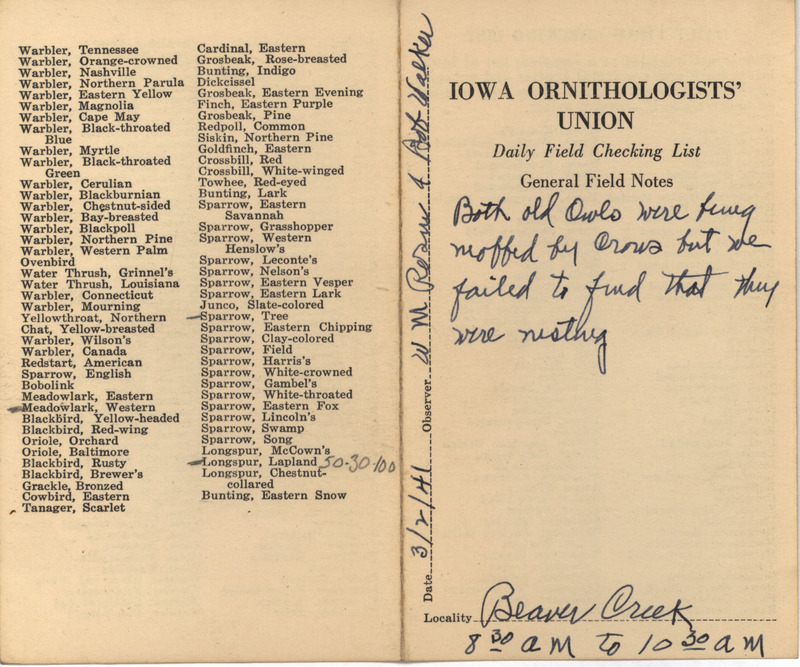 Warbler, Tennessee
Warbler, Orange-crowned
Warbler, Nashville
Warbler, Northern Parula
Warbler, Eastern Yellow
Warbler, Magnolia
Warbler, Cape May
Warbler, Black-throated
Blue
Warbler, Myrtle
Warbler, Black-throated
Green
Warbler, Cerulian
Warbler, Blackburnian
Warbler, Chestnut-sided
Warbler, Bay-breasted
Warbler, Blackpoll
Warbler, Northern Pine
Warbler, Western Palm
Ovenbird
Water Thrush, Grinnel's
Water Thrush, Louisiana
Warbler, Connecticut
Warbler, Mourning
Yellowthroat, Northern
Chat, Yellow-breasted
Warbler, Wilson's
Warbler, Canada
Redstart, American
Sparrow, English
Bobolink
Meadowlark, Eastern
Meadowlark, Western
Blackbird, Yellow-headed
Blackbird, Red-wing
Oriole, Orchard
Oriole, Baltimore
Blackbird, Rusty
Blackbird, Brewer's
Grackle, Bronzed
Cowbird, Eastern
Tanager, Scarlet
Cardinal, Eastern
Grosbeak, Rose-breasted
Bunting, Indigo
Dickcissel
Grosbeak, Eastern Evening
Finch, Eastern Purple
Grosbeak, Pine
Redpoll, Common
Siskin, Northern Pine
Goldfinch, Eastern
Crossbill, Red
Crossbill, White-winged
Towhee, Red-eyed
Bunting, Lark
Sparrow, Eastern
Savannah
Sparrow, Grasshopper
Sparrow, Western
Henslow's
Sparrow, Leconte's
Sparrow, Nelson's
Sparrow, Eastern Vesper
Sparrow, Eastern Lark
Junco, Slate-colored
Sparrow, Tree
Sparrow, Eastern Chipping
Sparrow, Clay-colored
Sparrow, Field
Sparrow, Harris's
Sparrow, White-crowned
Sparrow, Gambel's
Sparrow, White-throated
Sparrow, Eastern Fox
Sparrow, Lincoln's
Sparrow, Swamp
Sparrow, Song
Longspur, McCown's
Longspur, Lapland 50-30-100
Longspur, Chestnut-
collared
Bunting, Eastern Snow
Date 3/2/41 Observer W M Rosene & Bob Walker
IOWA ORNITHOLOGISTS'
UNION
Daily Field Checking List
General Field Notes
Both old Owls were being
moffed by Crows but we
failed to find that they
were nesting
Locality Beaver Creek
8 30 A M to 10 30 A M